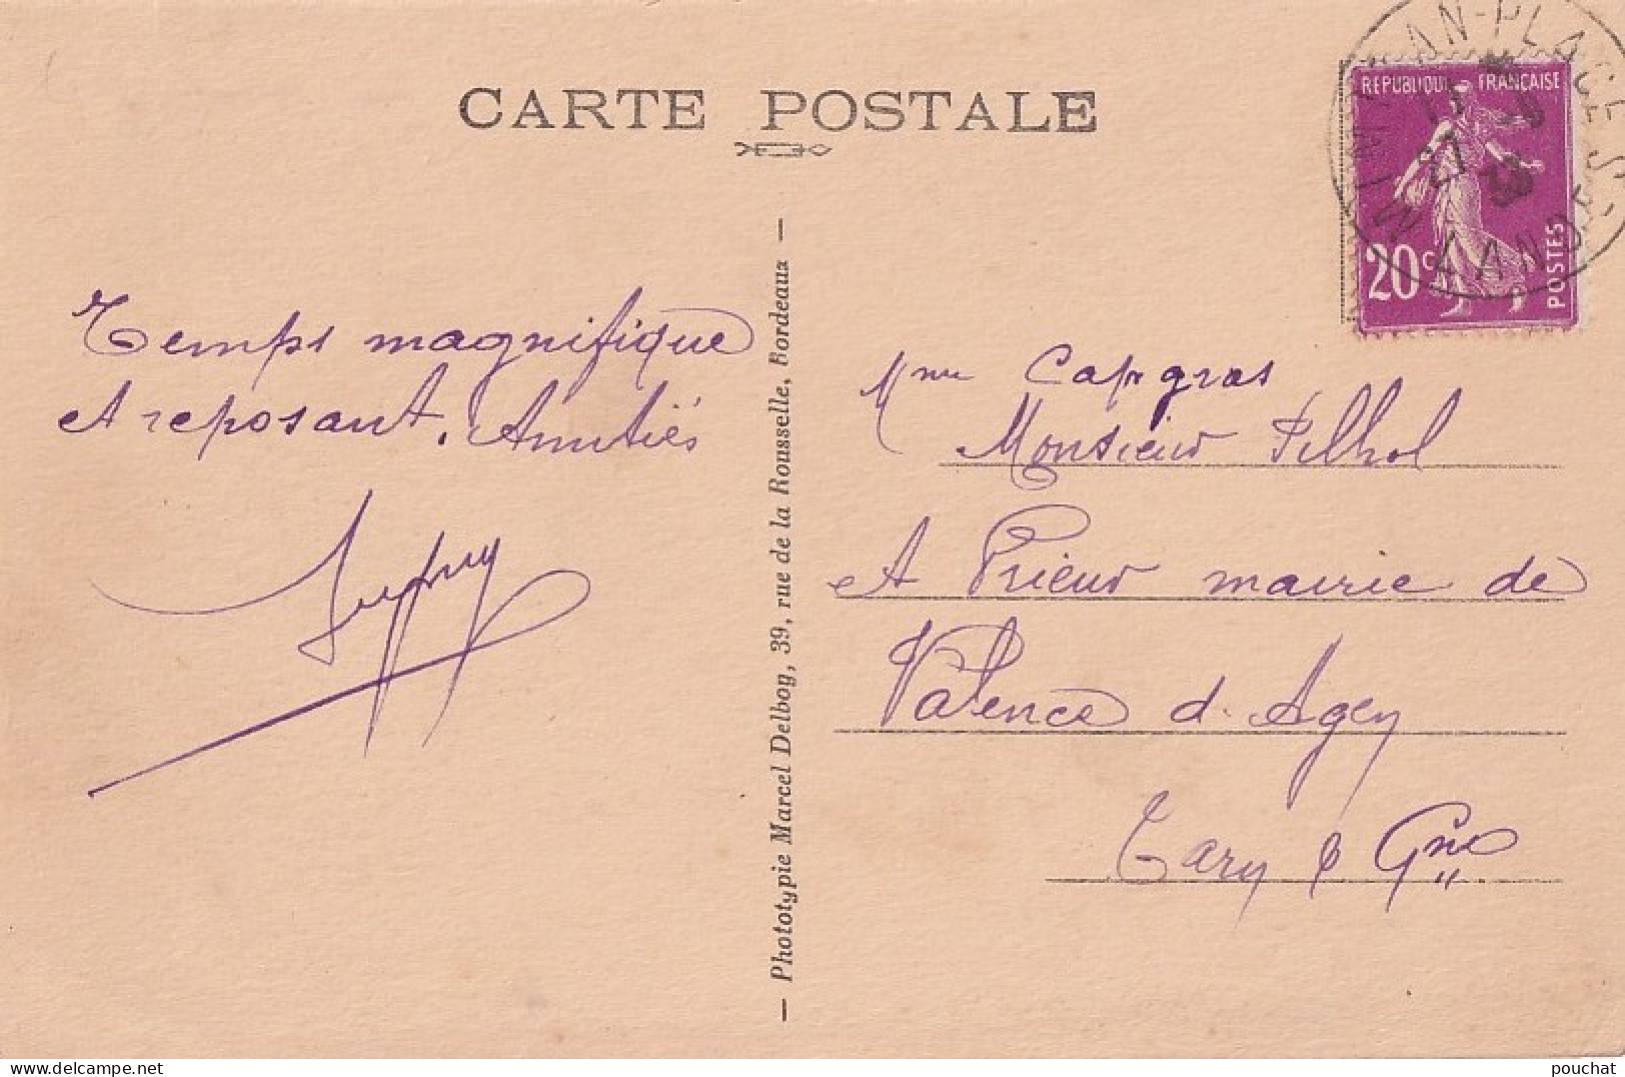 CARTE POSTALE
REPUBLIQUE FRANÇAISE
20c
POSTES
MIMIZAN-PLAGE
LANDES
Temps magnifique
et reposant. Amitiés
Dupuy
— Phototypie Marcel Delboy, 39, rue de la Rousselle, Bordeaux —
Mme Capgras
Monsieur Filhol
et Prieur mairie de
Valence d. Agen
Tarn & Gne
pouchat